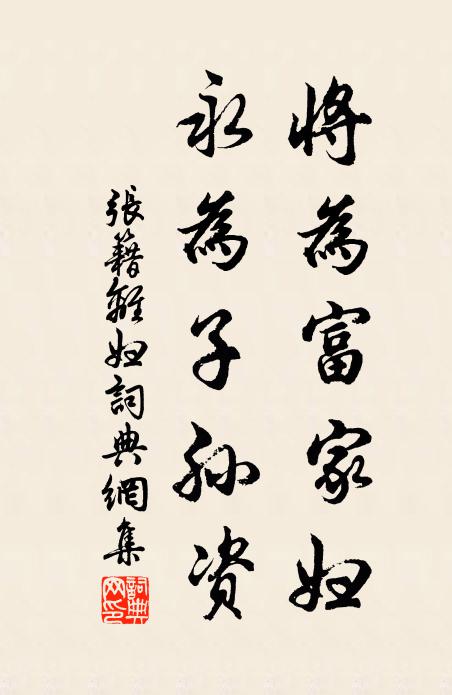 將為富家婦
永為子孫資
張籍離婦詞典網集
詞典网印